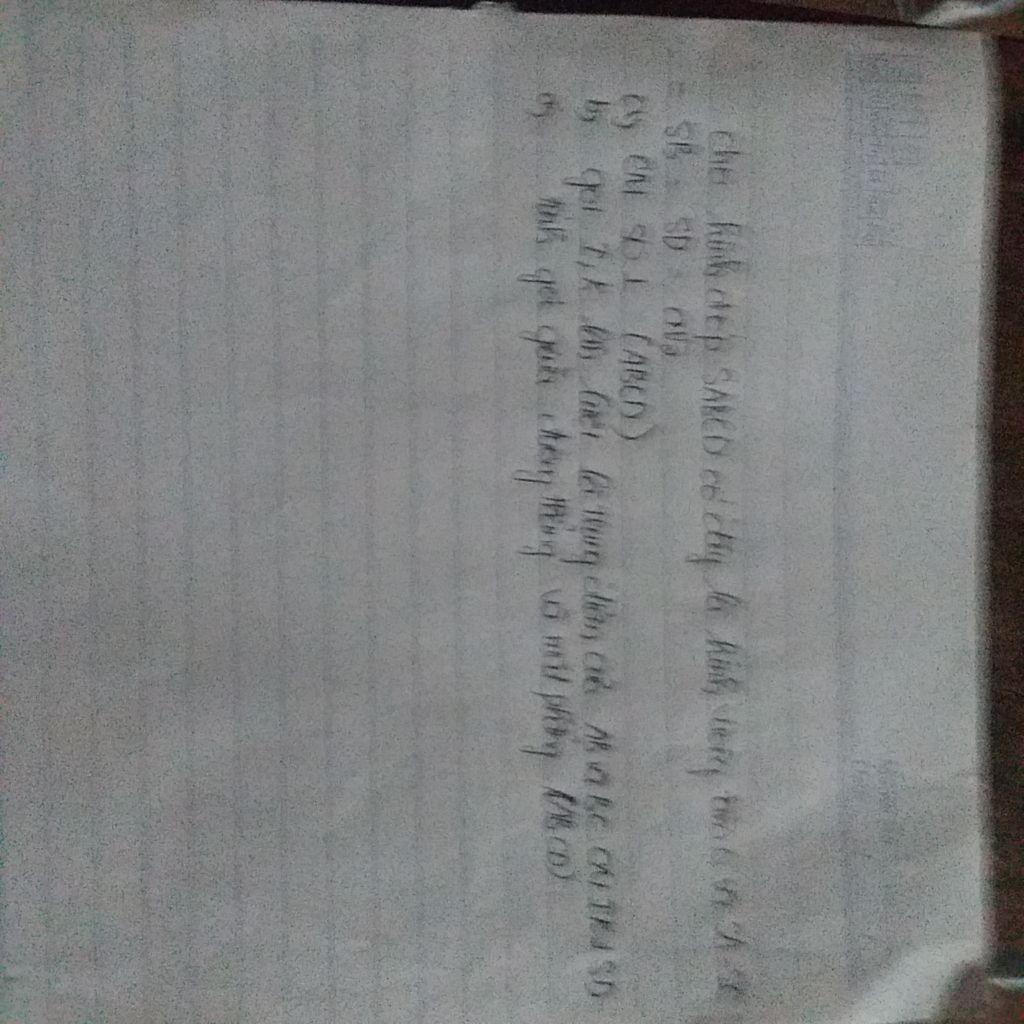 cho hình chóp SABCD có đáy là hình vuông tâm O
= SB = SD = a√2
a) CM SO ⊥ (ABCD)
b) gọi I, K lần lượt là trung điểm của AB và BC CM, IK ⊥ SD
c) tính góc giữa đường thẳng và mặt phẳng (ABCD)